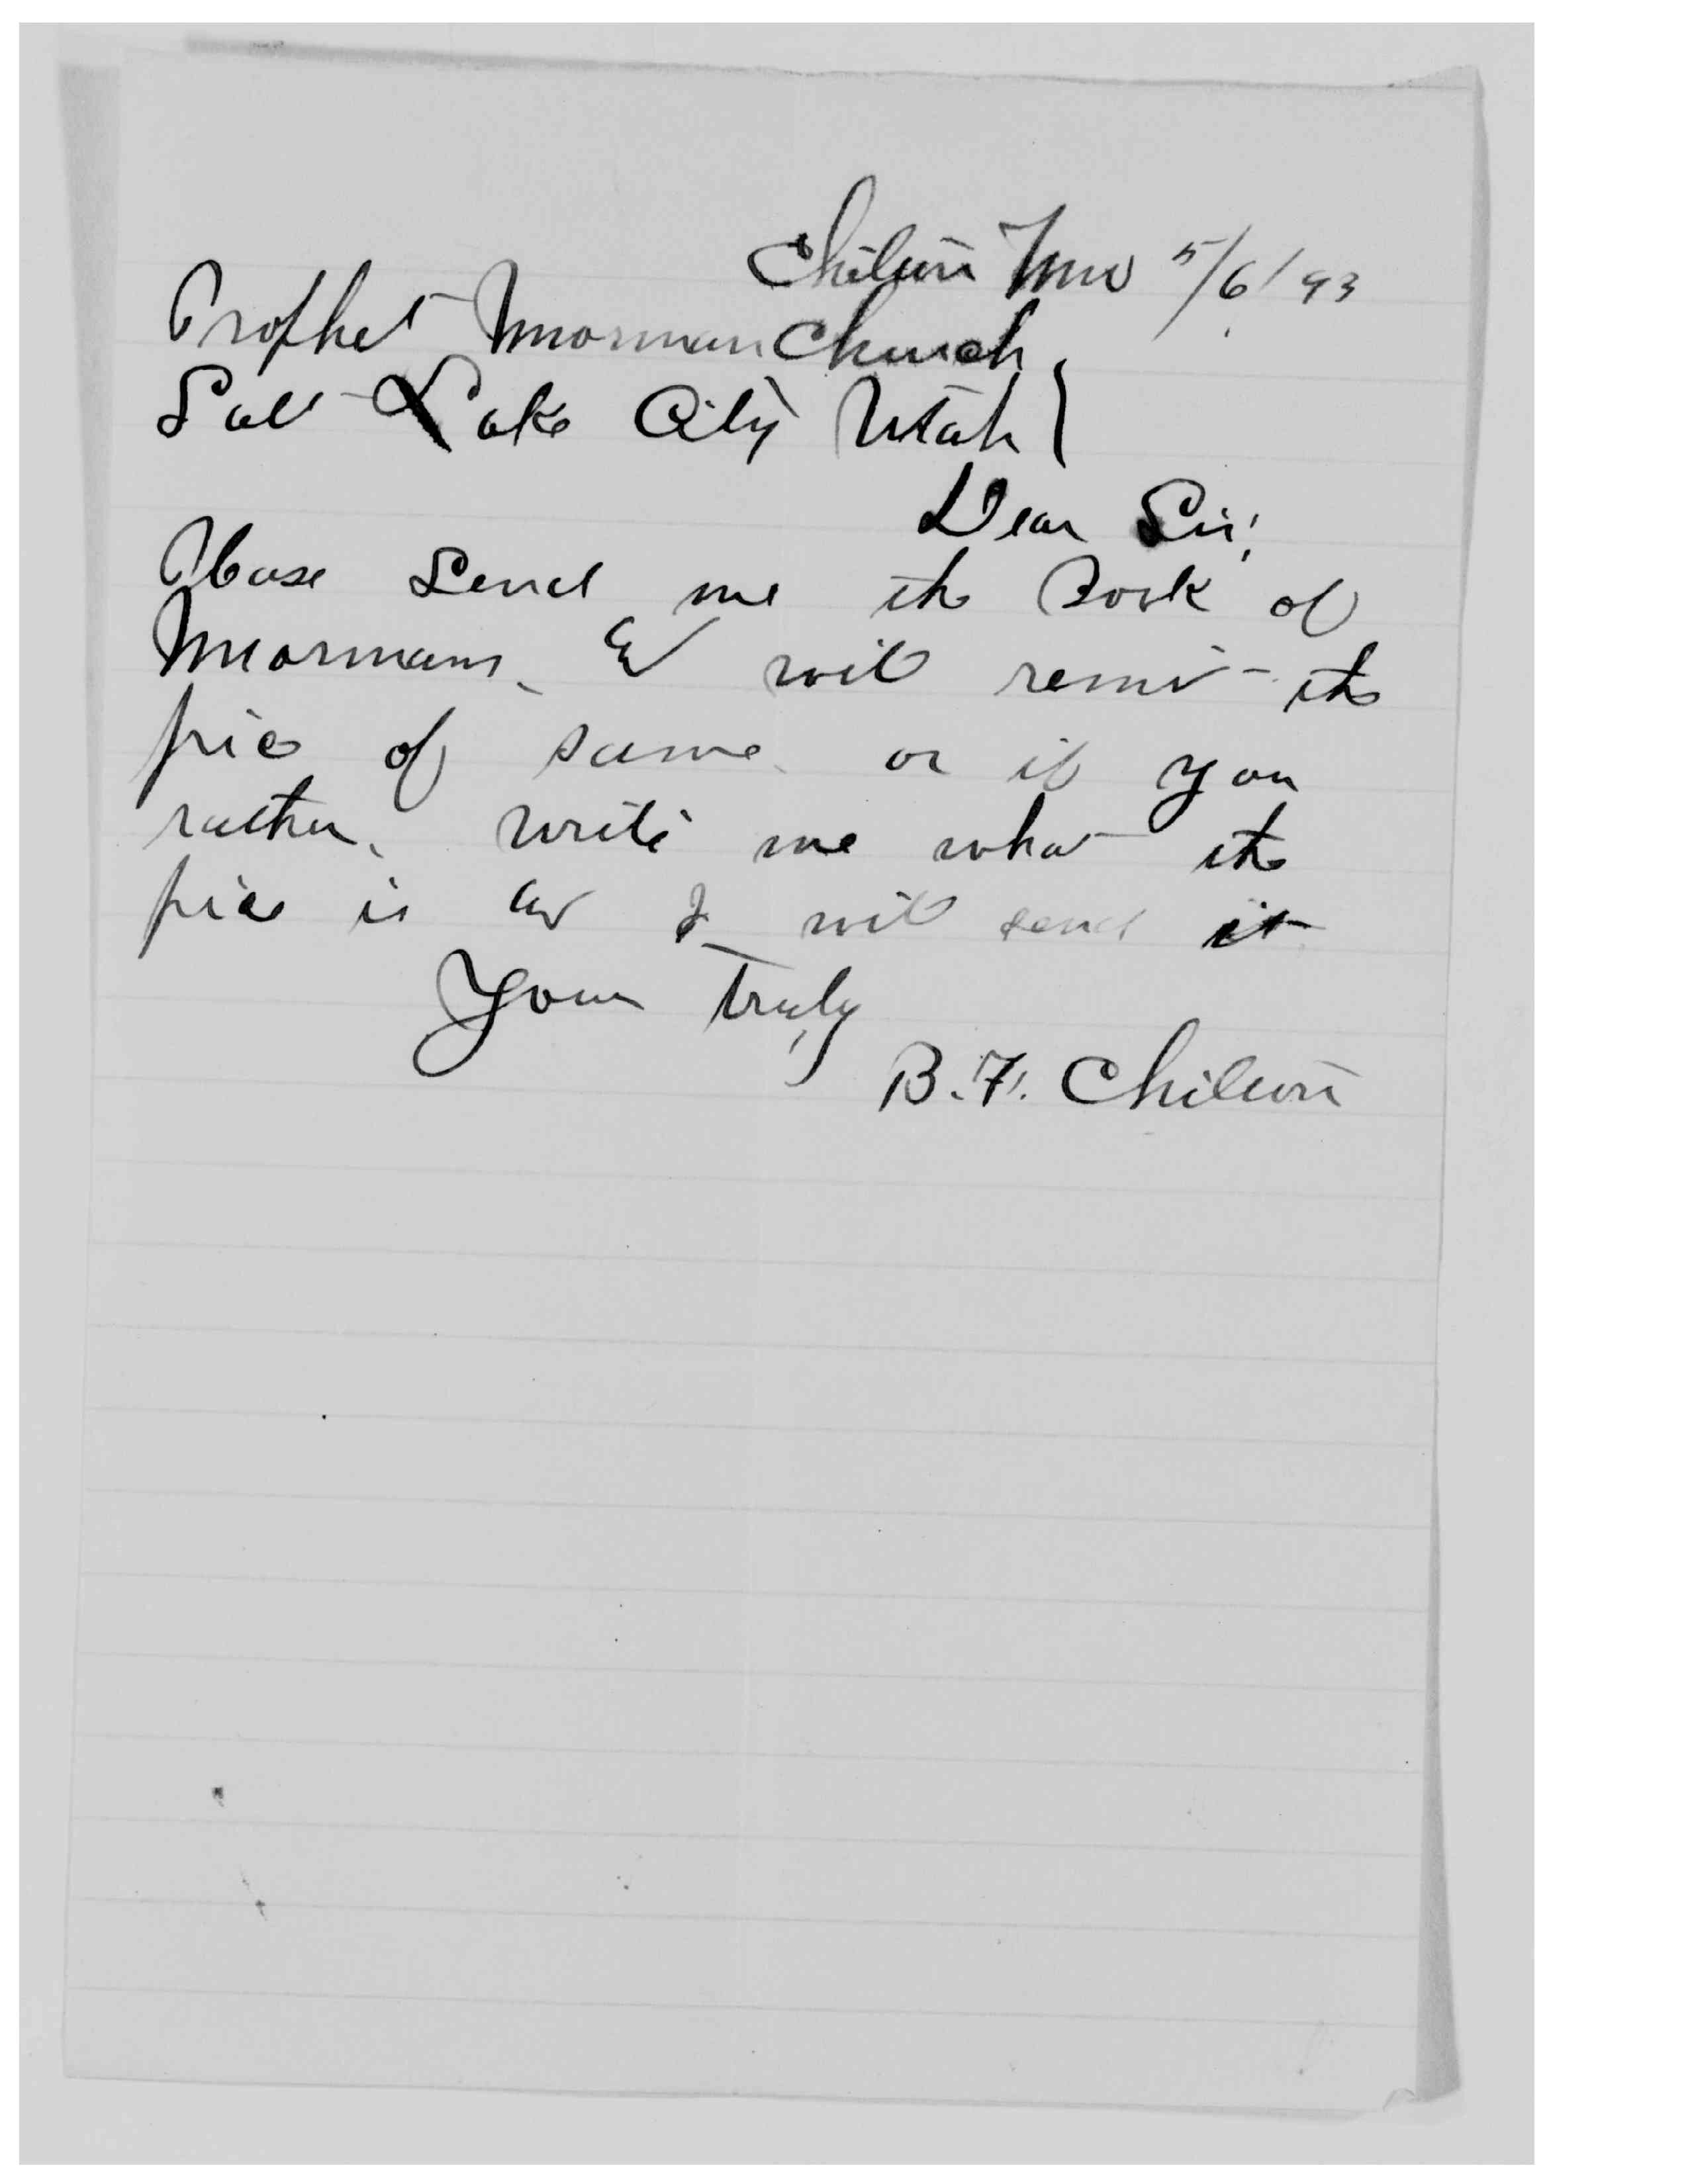 Chilton Mo 5/6/93
Prophet Morman Church
Salt Lake City Utah
Dear Sir;
Please Send me the Book of
Mormans. & will remit the
price of same. or if you
rather, write me what the
price is and I will send it
Yours Truly
B. F. Chilton